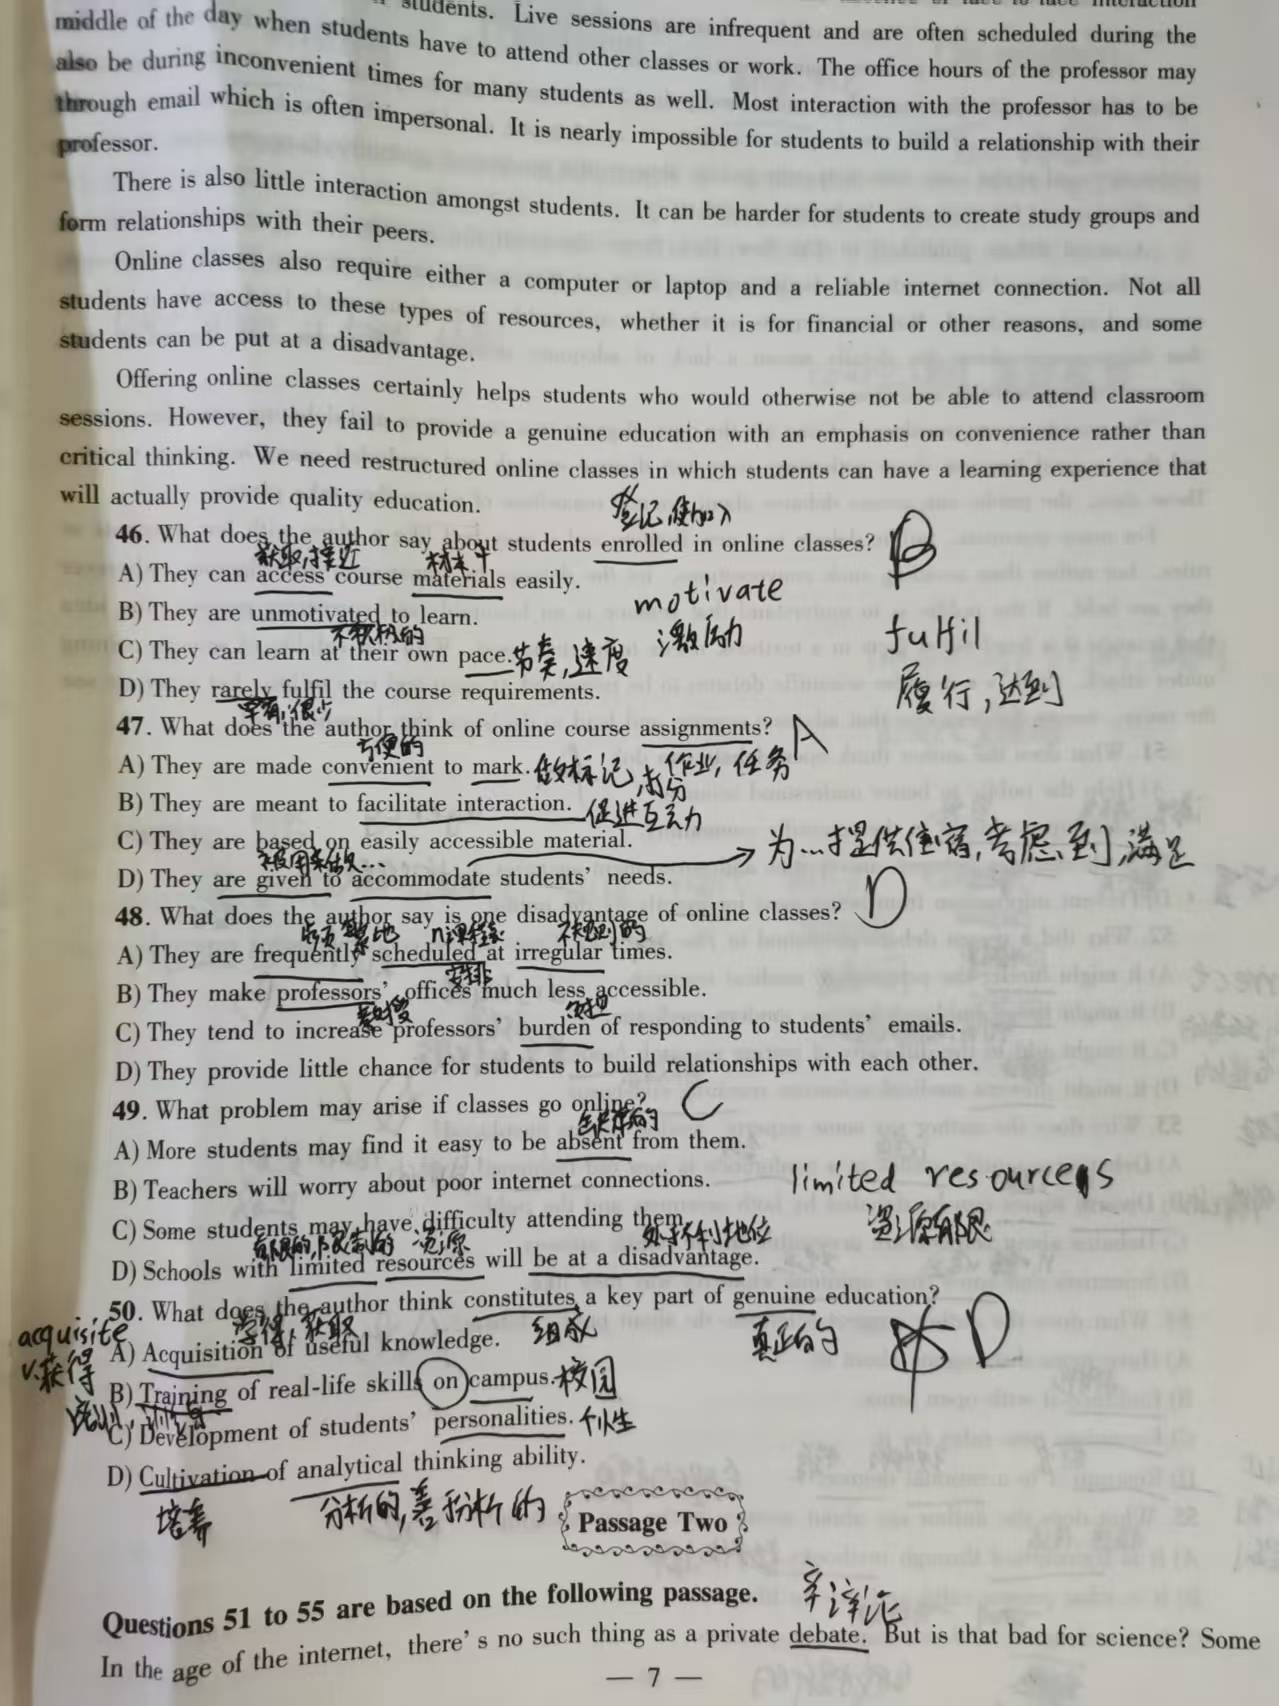 students. Live sessions are infrequent and are often scheduled during the
middle of the day when students have to attend other classes or work. The office hours of the professor may
also be during inconvenient times for many students as well. Most interaction with the professor has to be
through email which is often impersonal. It is nearly impossible for students to build a relationship with their
professor.
There is also little interaction amongst students. It can be harder for students to create study groups and
form relationships with their peers.
Online classes also require either a computer or laptop and a reliable internet connection. Not all
students have access to these types of resources, whether it is for financial or other reasons, and some
students can be put at a disadvantage.
Offering online classes certainly helps students who would otherwise not be able to attend classroom
sessions. However, they fail to provide a genuine education with an emphasis on convenience rather than
critical thinking. We need restructured online classes in which students can have a learning experience that
will actually provide quality education.
登记,使加入
46. What does the author say about students enrolled in online classes? B
获取,接近
A) They can access course materials easily.
motivate
B) They are unmotivated to learn.
不积极的 激励 fulfil
C) They can learn at their own pace. 节奏,速度
履行,达到
D) They rarely fulfil the course requirements.
罕有,很少
47. What does the author think of online course assignments? A
方便的
A) They are made convenient to mark. 做标记,打分 作业,任务
B) They are meant to facilitate interaction. 促进互动
C) They are based on easily accessible material.
为...提供住宿,考虑到,满足
D) They are given to accommodate students' needs.
48. What does the author say is one disadvantage of online classes? D
不规则的
A) They are frequently scheduled at irregular times.
安排
B) They make professors' offices much less accessible.
教授 负担
C) They tend to increase professors' burden of responding to students' emails.
D) They provide little chance for students to build relationships with each other.
49. What problem may arise if classes go online? C
缺席的
A) More students may find it easy to be absent from them.
B) Teachers will worry about poor internet connections.
limited resources
C) Some students may have difficulty attending them.
有限的,限制的 资源 处于不利地位 资源有限
D) Schools with limited resources will be at a disadvantage.
50. What does the author think constitutes a key part of genuine education? D
acquisite
v.获得
学得,获取 组成 真正的
A) Acquisition of useful knowledge.
B) Training of real-life skills on campus. 校园
C) Development of students' personalities. 个性
D) Cultivation of analytical thinking ability.
培养 分析的,善于分析的
Passage Two
Questions 51 to 55 are based on the following passage.
In the age of the internet, there's no such thing as a private debate. But is that bad for science? Some
— 7 —